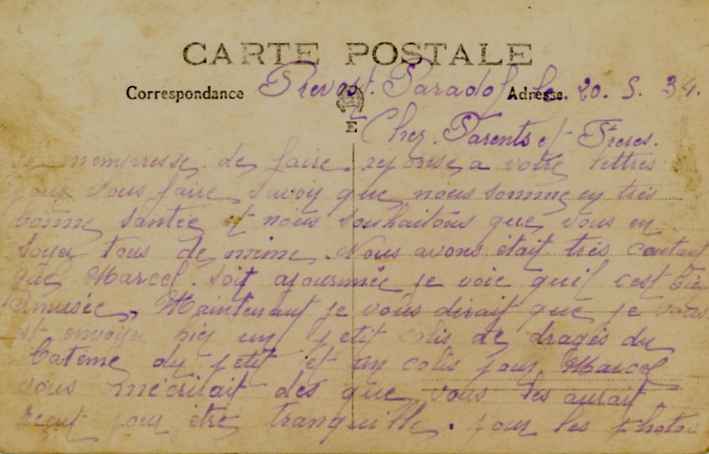 CARTE POSTALE
Correspondance Adresse
Prevost-Paradol le. 20. 5. 34.
Chez. Parents et Freres.
Je mempresse. de faire. reponse a votre lettres
pour vous faire. savoir que nous somme en très
bonne santée et nous souhaitons que, vous en
soyez tous de même. Nous avons était très contant
que Marcel. soit ajournnée je voie quil c'est bien
amusée, Maintenant je vous dirait que je vous
est envoyer hier un petit colis de dragés du
batême du petit et un colis pour Marcel
vous m'écrirait dès que, vous les aurait
reçut pour être tranquille. pour les photos